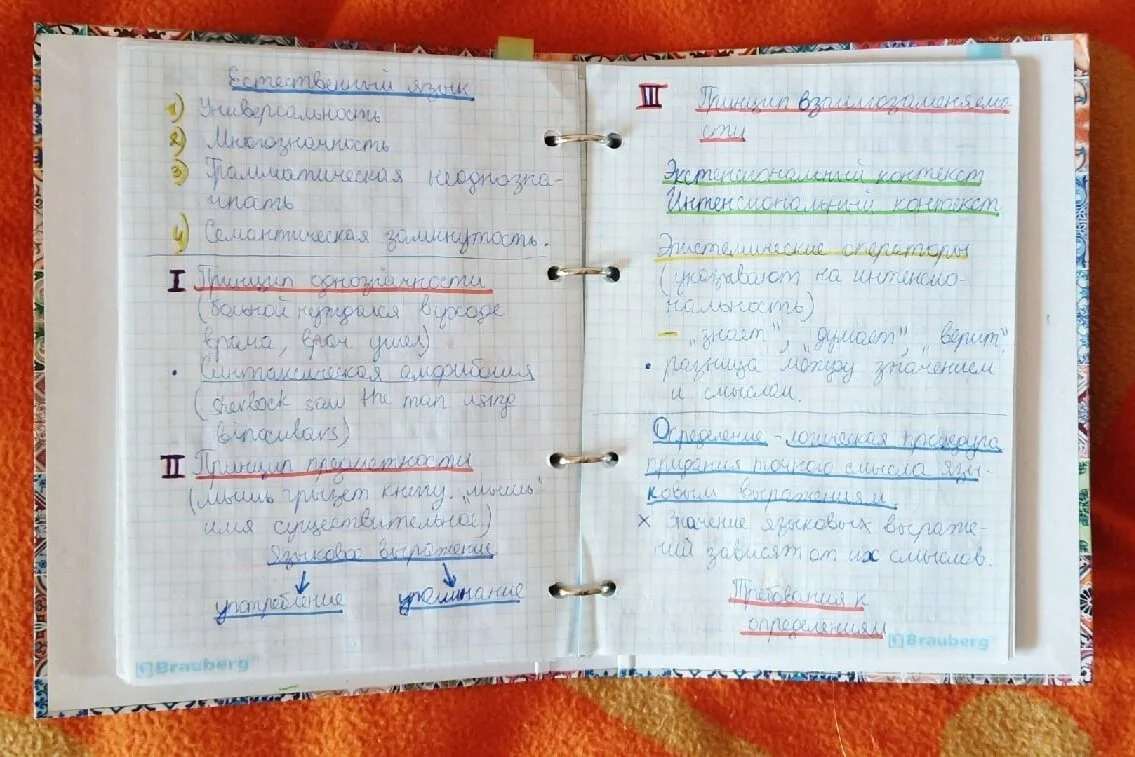 Естественный язык
1) Универсальность
2) Многозначность
3) Грамматическая неоднозна-
4) Семантическая замкнутость.
I Принцип однозначности
(больной нуждался в уходе
врача, врач ушел)
• Синтаксическая амфиболия
(sherlock saw the man using
binoculars)
II Принцип предметности
(мышь грызет книгу. "мышь"
имя существительное)
языковое выражение
употребление упоминание
Brauberg
III Принцип взаимозаменяемо-
сти
Экстенсиональный контекст
Интенсиональный контекст
Эпистемические операторы
(указывают на интенсио-
нальность)
– "знает", "думает", "верит"
• разница между значением
и смыслом.
Определение - логическая процедура
придания точного смысла язы-
ковым выражениям.
× Значение языковых выраже-
ний зависят от их смыслов.
Требования к
определениям
Brauberg